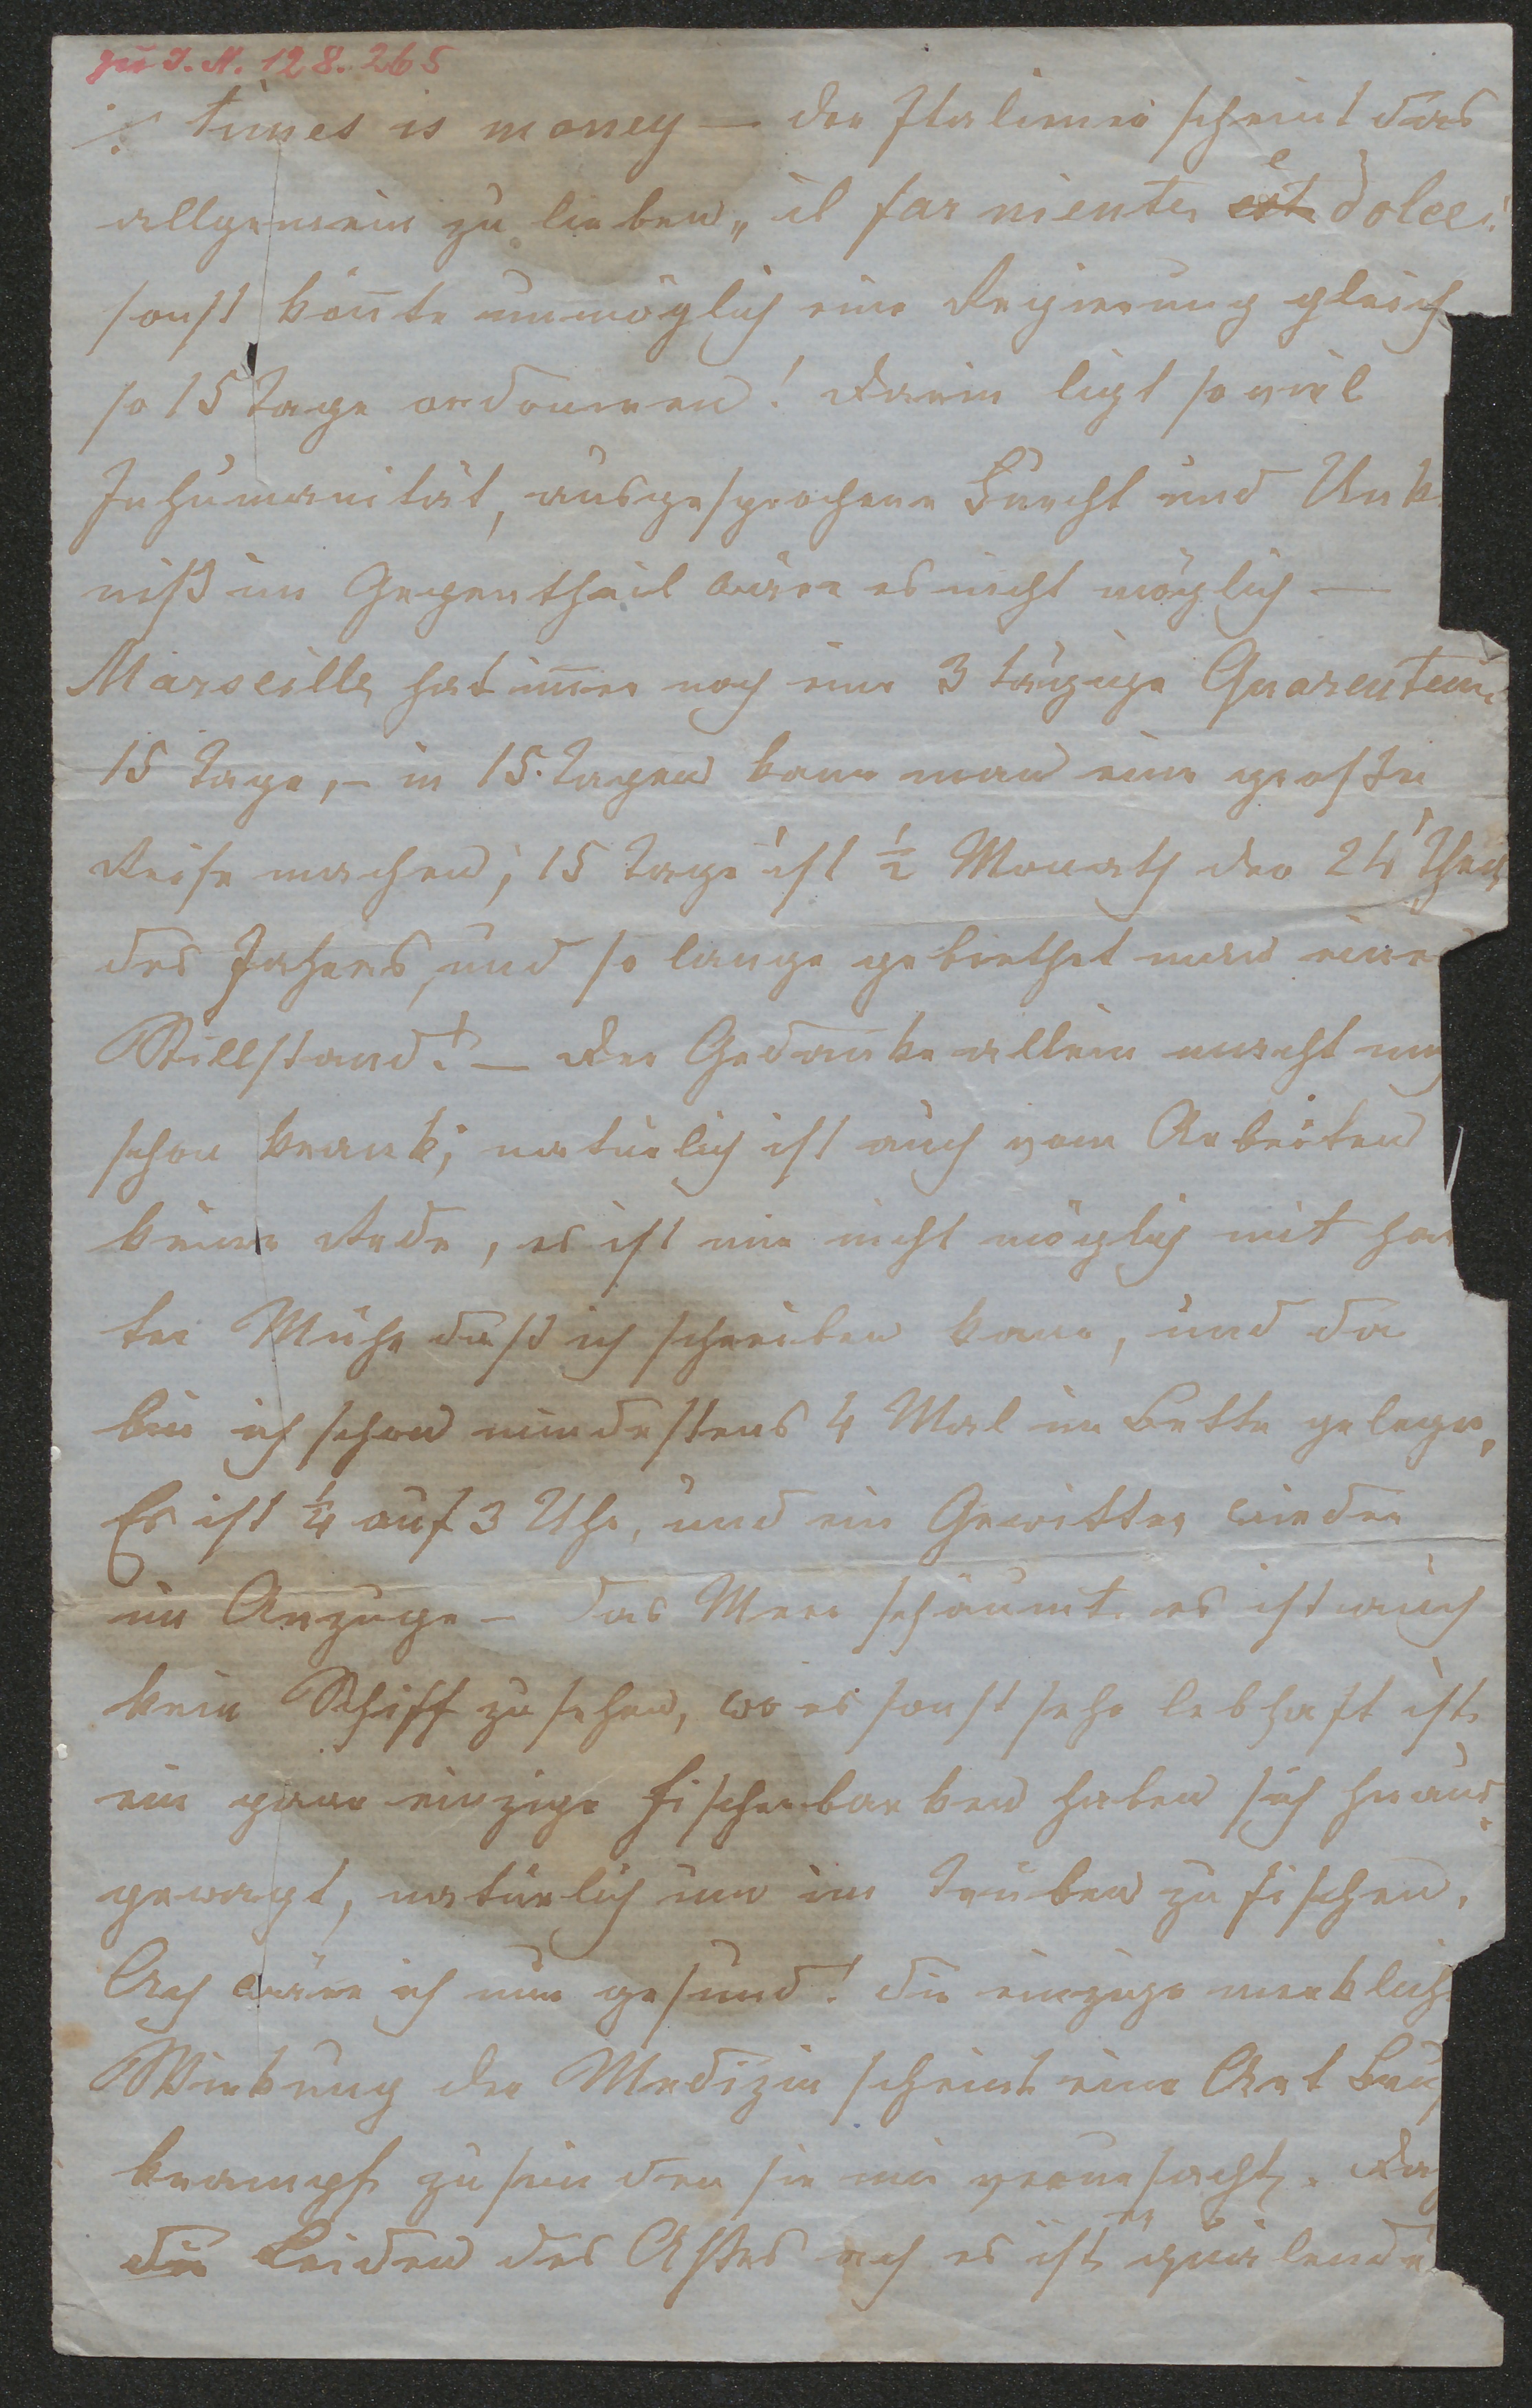 zu I. N. 128.265
./. times is money — der Italiener scheint das
allgemein zu lieben „il far niente, est e dolce!
sonst könnte unmöglich eine Regierung gleich
so 15 Tage ordonnen! Darin ligt so viel
Inhumanität, ausgesprochene Furcht und Unk
niß im Gegentheil wäre es nicht möglich —
Marseille, hat im̄er noch eine 3 tägige Quarentein
15 Tage, – in 15. Tagen kann man eine große
Reise machen; 15 Tage ist ½ Monath der 24' Theil
des Jahres, und so lange gebiethet man eine
Stillstand! — Der Gedanke allein macht mich
schon krank; natürlich ist auch vom Arbeiten
keine Rede, es ist mir nicht möglich mit har
ter Mühe daß ich schreiben kann, und da
bin ich schon mindestens 4 Mal im Bette gelegen,
Es ist ¼ auf 3 Uhr, und ein Gewitter wieder
im Anzuge – das Meer schäumt. es ist auch
kein Schiff zu sehen, wo es sonst sehr lebhaft ist.
ein paar einzige Fischerbarken haben sich heraus
gewagt, natürlich um im Trüben zu fischen.
Ach wäre ich nur gesund! die einzige merklich
Wirkung der Medizin scheint eine Art
krampf zu sein den sie mir verursacht. Da
die Leiden des Aftes ach es ist quälende